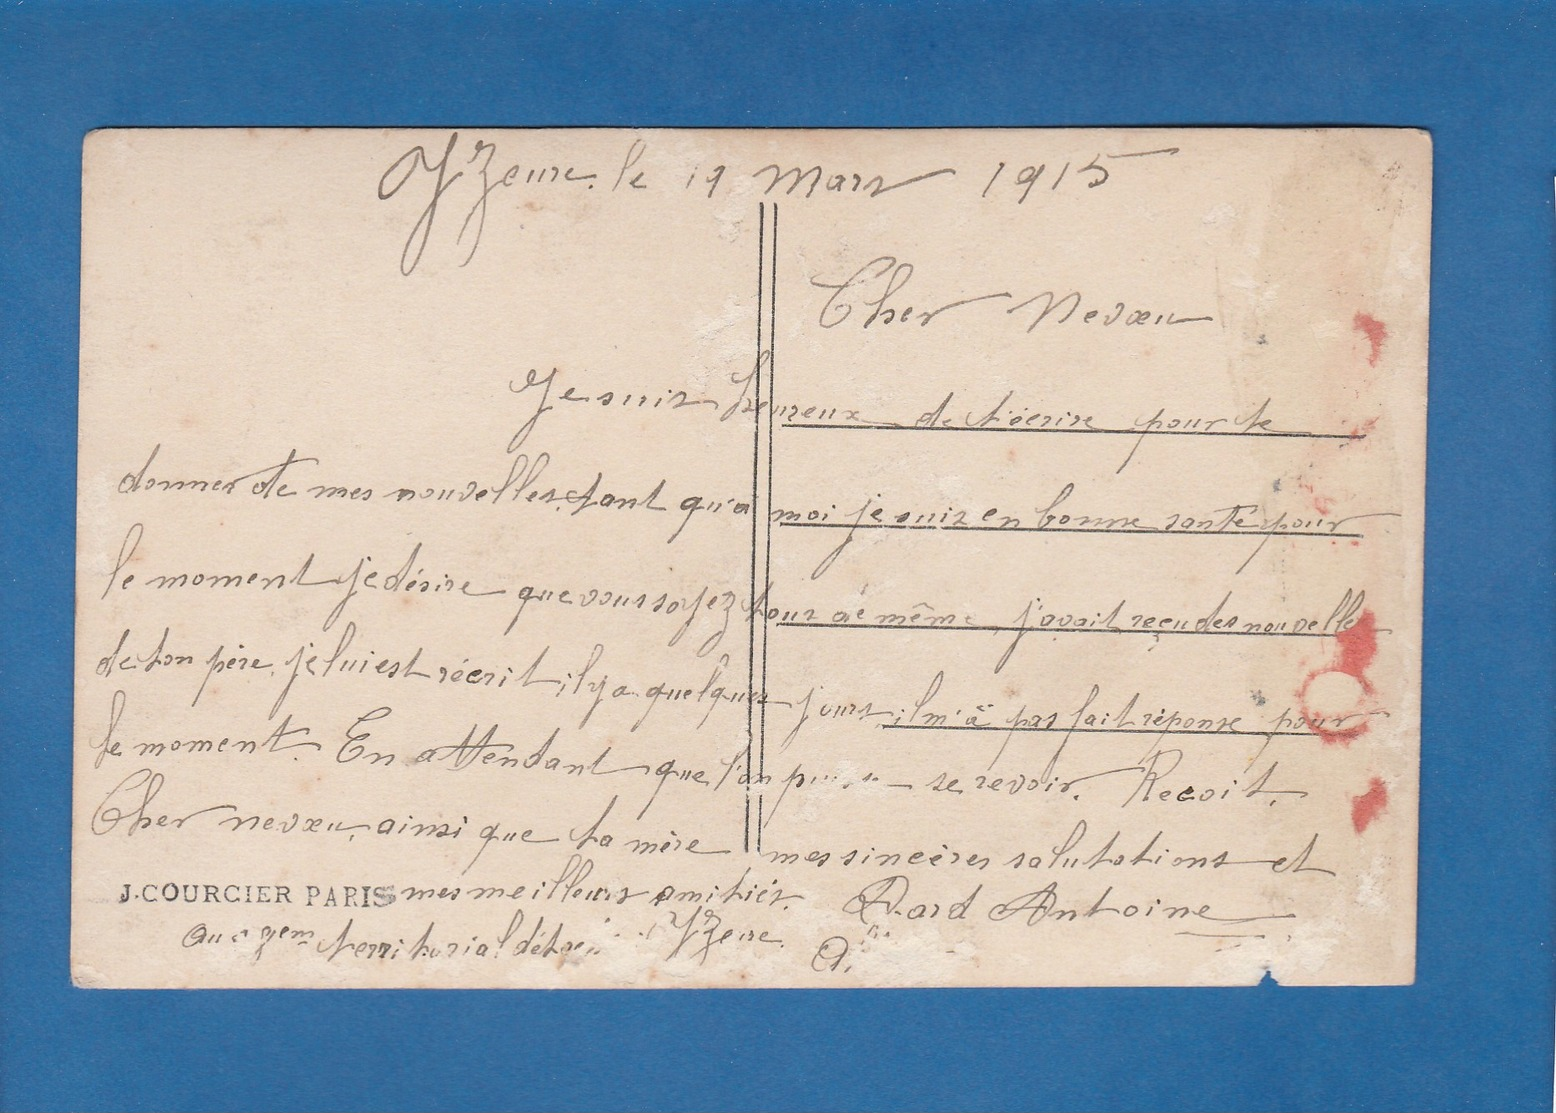 Yzeure. le 19 Mars 1915
Cher Nevœu
Je suis heureux de t'écrire pour te
donner de mes nouvelles, tant qu'à moi je suis en bonne santé pour
le moment je désire que vous soyez tous de même, j'avait reçu des nouvelles
de ton père, je lui est récrit, il y a quelques jours, il m'à pas fait réponse pour
le moment. En attendant que l'on se revoir. Recoit,
Cher nevœu, ainsi que ta mère mes sincères salutations et
J. COURCIER PARIS mes meilleurs amitiés. Dard Antoine
territorial Yzeure.